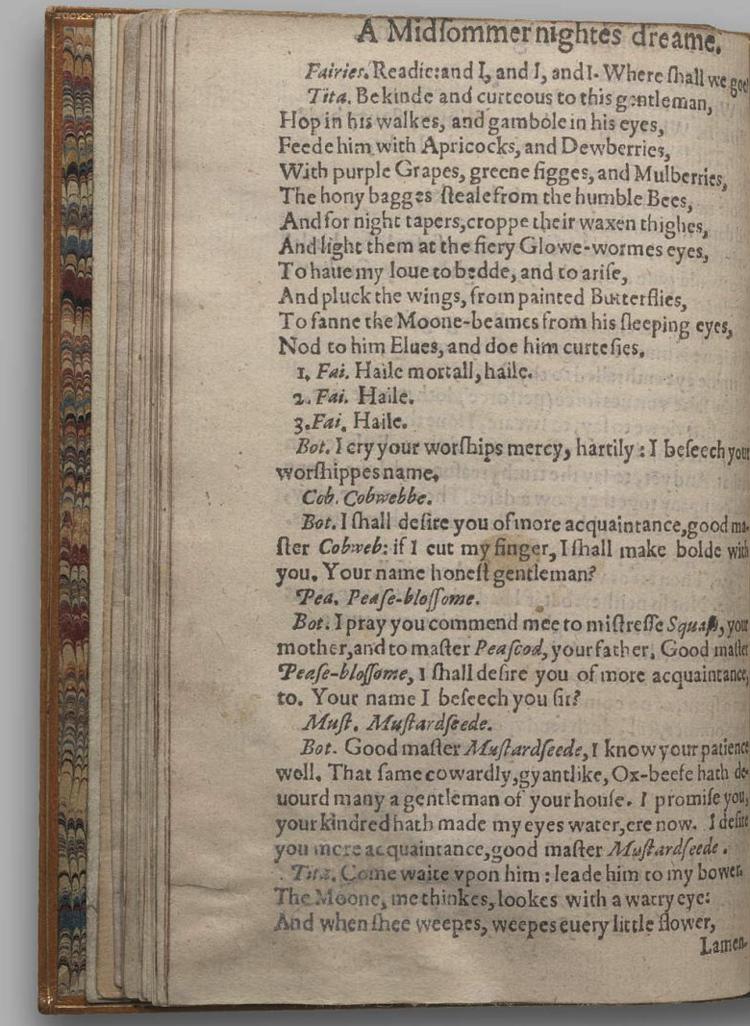 A Midſommer nightes dreame.
Fairies. Readie: and I, and I, and I. Where ſhall we goe?
Tita. Be kinde and curteous to this gentleman,
Hop in his walkes, and gambole in his eyes,
Feede him with Apricocks, and Dewberries,
With purple Grapes, greene figges, and Mulberries,
The hony bagges ſteale from the humble Bees,
And for night tapers, croppe their waxen thighes,
And light them at the fiery Glowe-wormes eyes,
To haue my loue to bedde, and to ariſe,
And pluck the wings, from painted Butterflies,
To fanne the Moone-beames from his ſleeping eyes,
Nod to him Elues, and doe him curteſies.
1. Fai. Haile mortall, haile.
2. Fai. Haile.
3. Fai. Haile.
Bot. I cry your worſhips mercy, hartily: I beſeech your
worſhippes name.
Cob. Cobwebbe.
Bot. I ſhall deſire you of more acquaintance, good ma-
ſter Cobweb: if I cut my finger, I ſhall make bolde with
you. Your name honeſt gentleman?
Pea. Peaſe-bloſſome.
Bot. I pray you commend mee to miſtreſſe Squaſh, your
mother, and to maſter Peaſcod, your father. Good maſter
Peaſe-bloſſome, I ſhall deſire you of more acquaintance,
to. Your name I beſeech you ſir?
Muſt. Muſtardſeede.
Bot. Good maſter Muſtardſeede, I know your patience
well. That ſame cowardly, gyantlike, Ox-beefe hath de-
uourd many a gentleman of your houſe. I promiſe you,
your kindred hath made my eyes water, ere now. I deſire
you more acquaintance, good maſter Muſtardſeede.
Tita. Come waite vpon him: leade him to my bower.
The Moone, me thinkes, lookes with a watry eye:
And when ſhee weepes, weepes euery little flower,
Lamen-